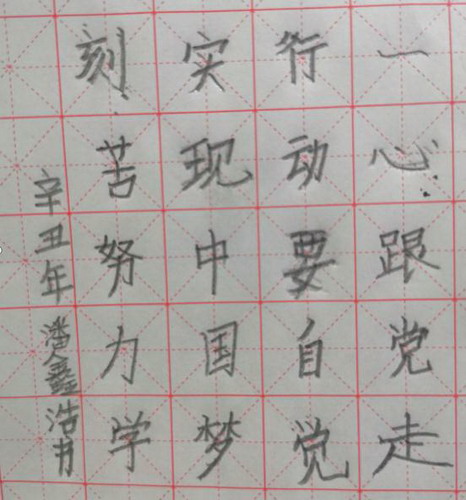 一心跟党走
行动要自觉
实现中国梦
刻苦努力学
辛丑年潘鑫浩书